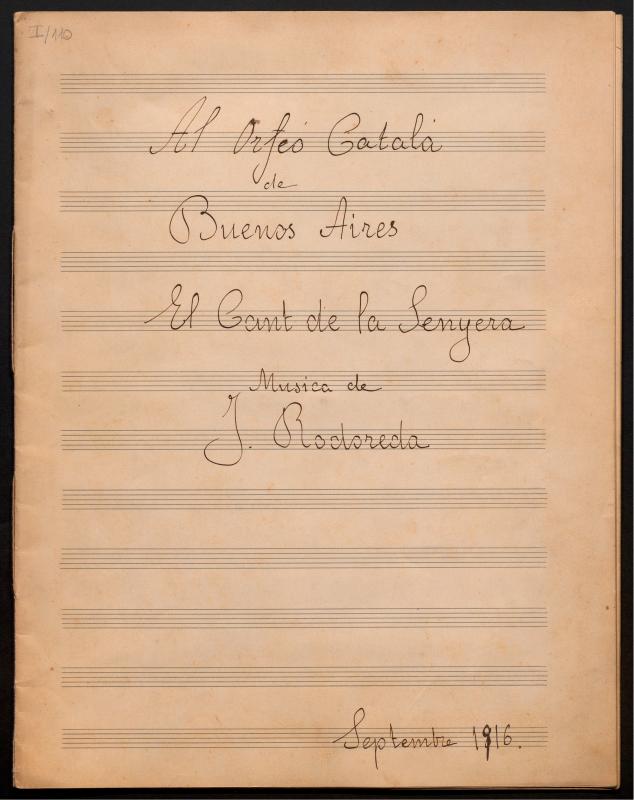 I/110
Al Orfeó Català
de
Buenos Aires
El Cant de la Senyera
Musica de
J. Rodoreda
Septembre 1916.